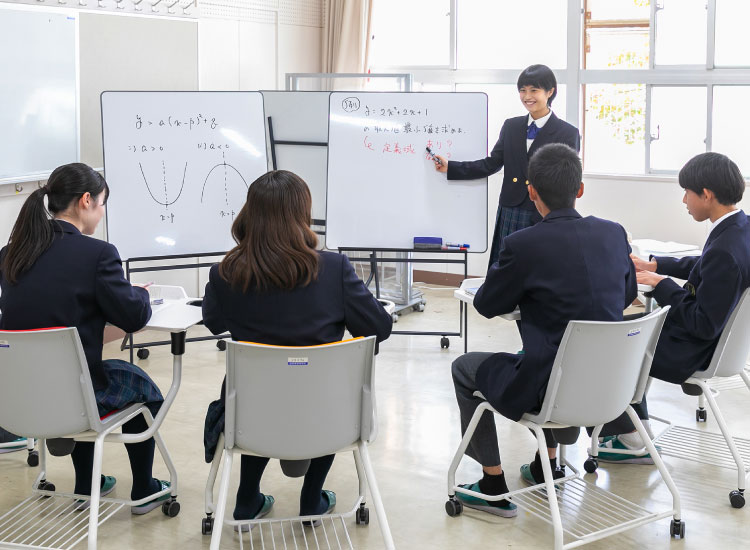 y = a(x-p)²+q
i) a>0
ii) a<0
x=p
x=p
y = 2x²+2x+1
の最大値最小値を求めよ。
定義域 あり?